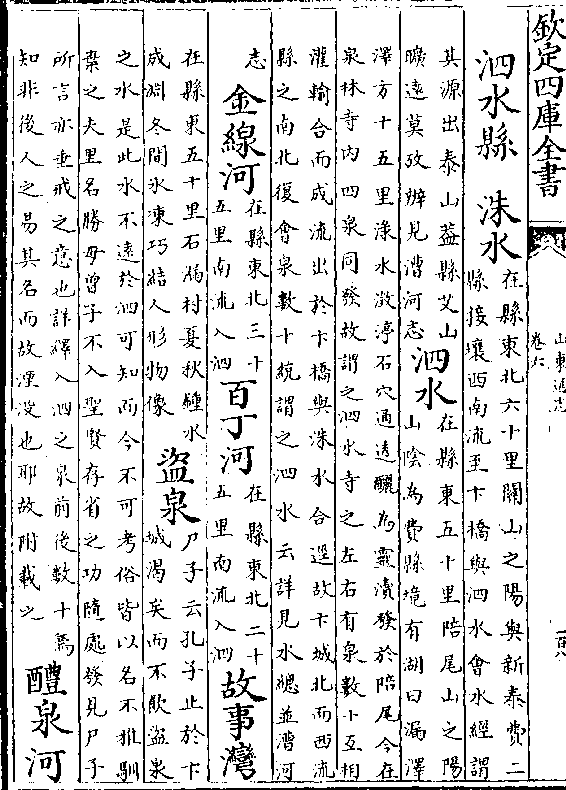 欽定四庫全書
山東通志
卷六
一百八
泗水縣　洙水
在縣東北六十里關山之陽與新泰費二
縣接壤西南流至卞橋與泗水會水經謂
其源出泰山蓋縣艾山
曠遠莫攷辨見漕河志
泗水
在縣東五十里陪尾山之陽
山陰為費縣境有湖曰漏澤
澤方十五里淥水澂渟石穴通透釃為靈瀆發於陪尾今在
泉林寺内四泉同發故謂之泗水寺之左右有泉數十互相
灌輸合而成流出於卞橋與洙水合逕故卞城北而西流
縣之南北復會泉數十統謂之泗水云詳見水總並漕河
志
金線河
在縣東北三十
五里南流入泗
百丁河
在縣東北二十
五里南流入泗
故事灣
在縣東五十里石村夏秋水
成澗冬間氷凍巧結人形物像
盜泉
尸子云孔子止於卞
城渴矣而不飲盜泉
之水是此水不遠於泗可知而今不可考俗皆以名不雅馴
棄之夫里名勝母曾子不入聖賢存省之功隨處發見尸子
所言亦垂戒之意也詳繹入泗之泉前後數十焉
知非後人之易其名而故湮没也耶故附載之
醴泉河